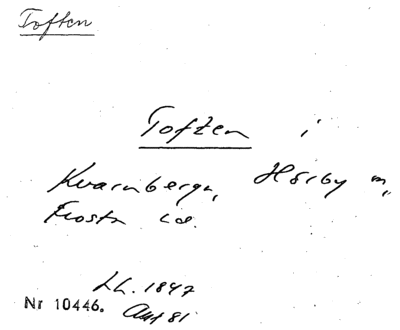 Toften
Toften i
Kvarnberga, Hörby m,,
Frosta hd.
LL. 1847
Nr 10446. Akt 81